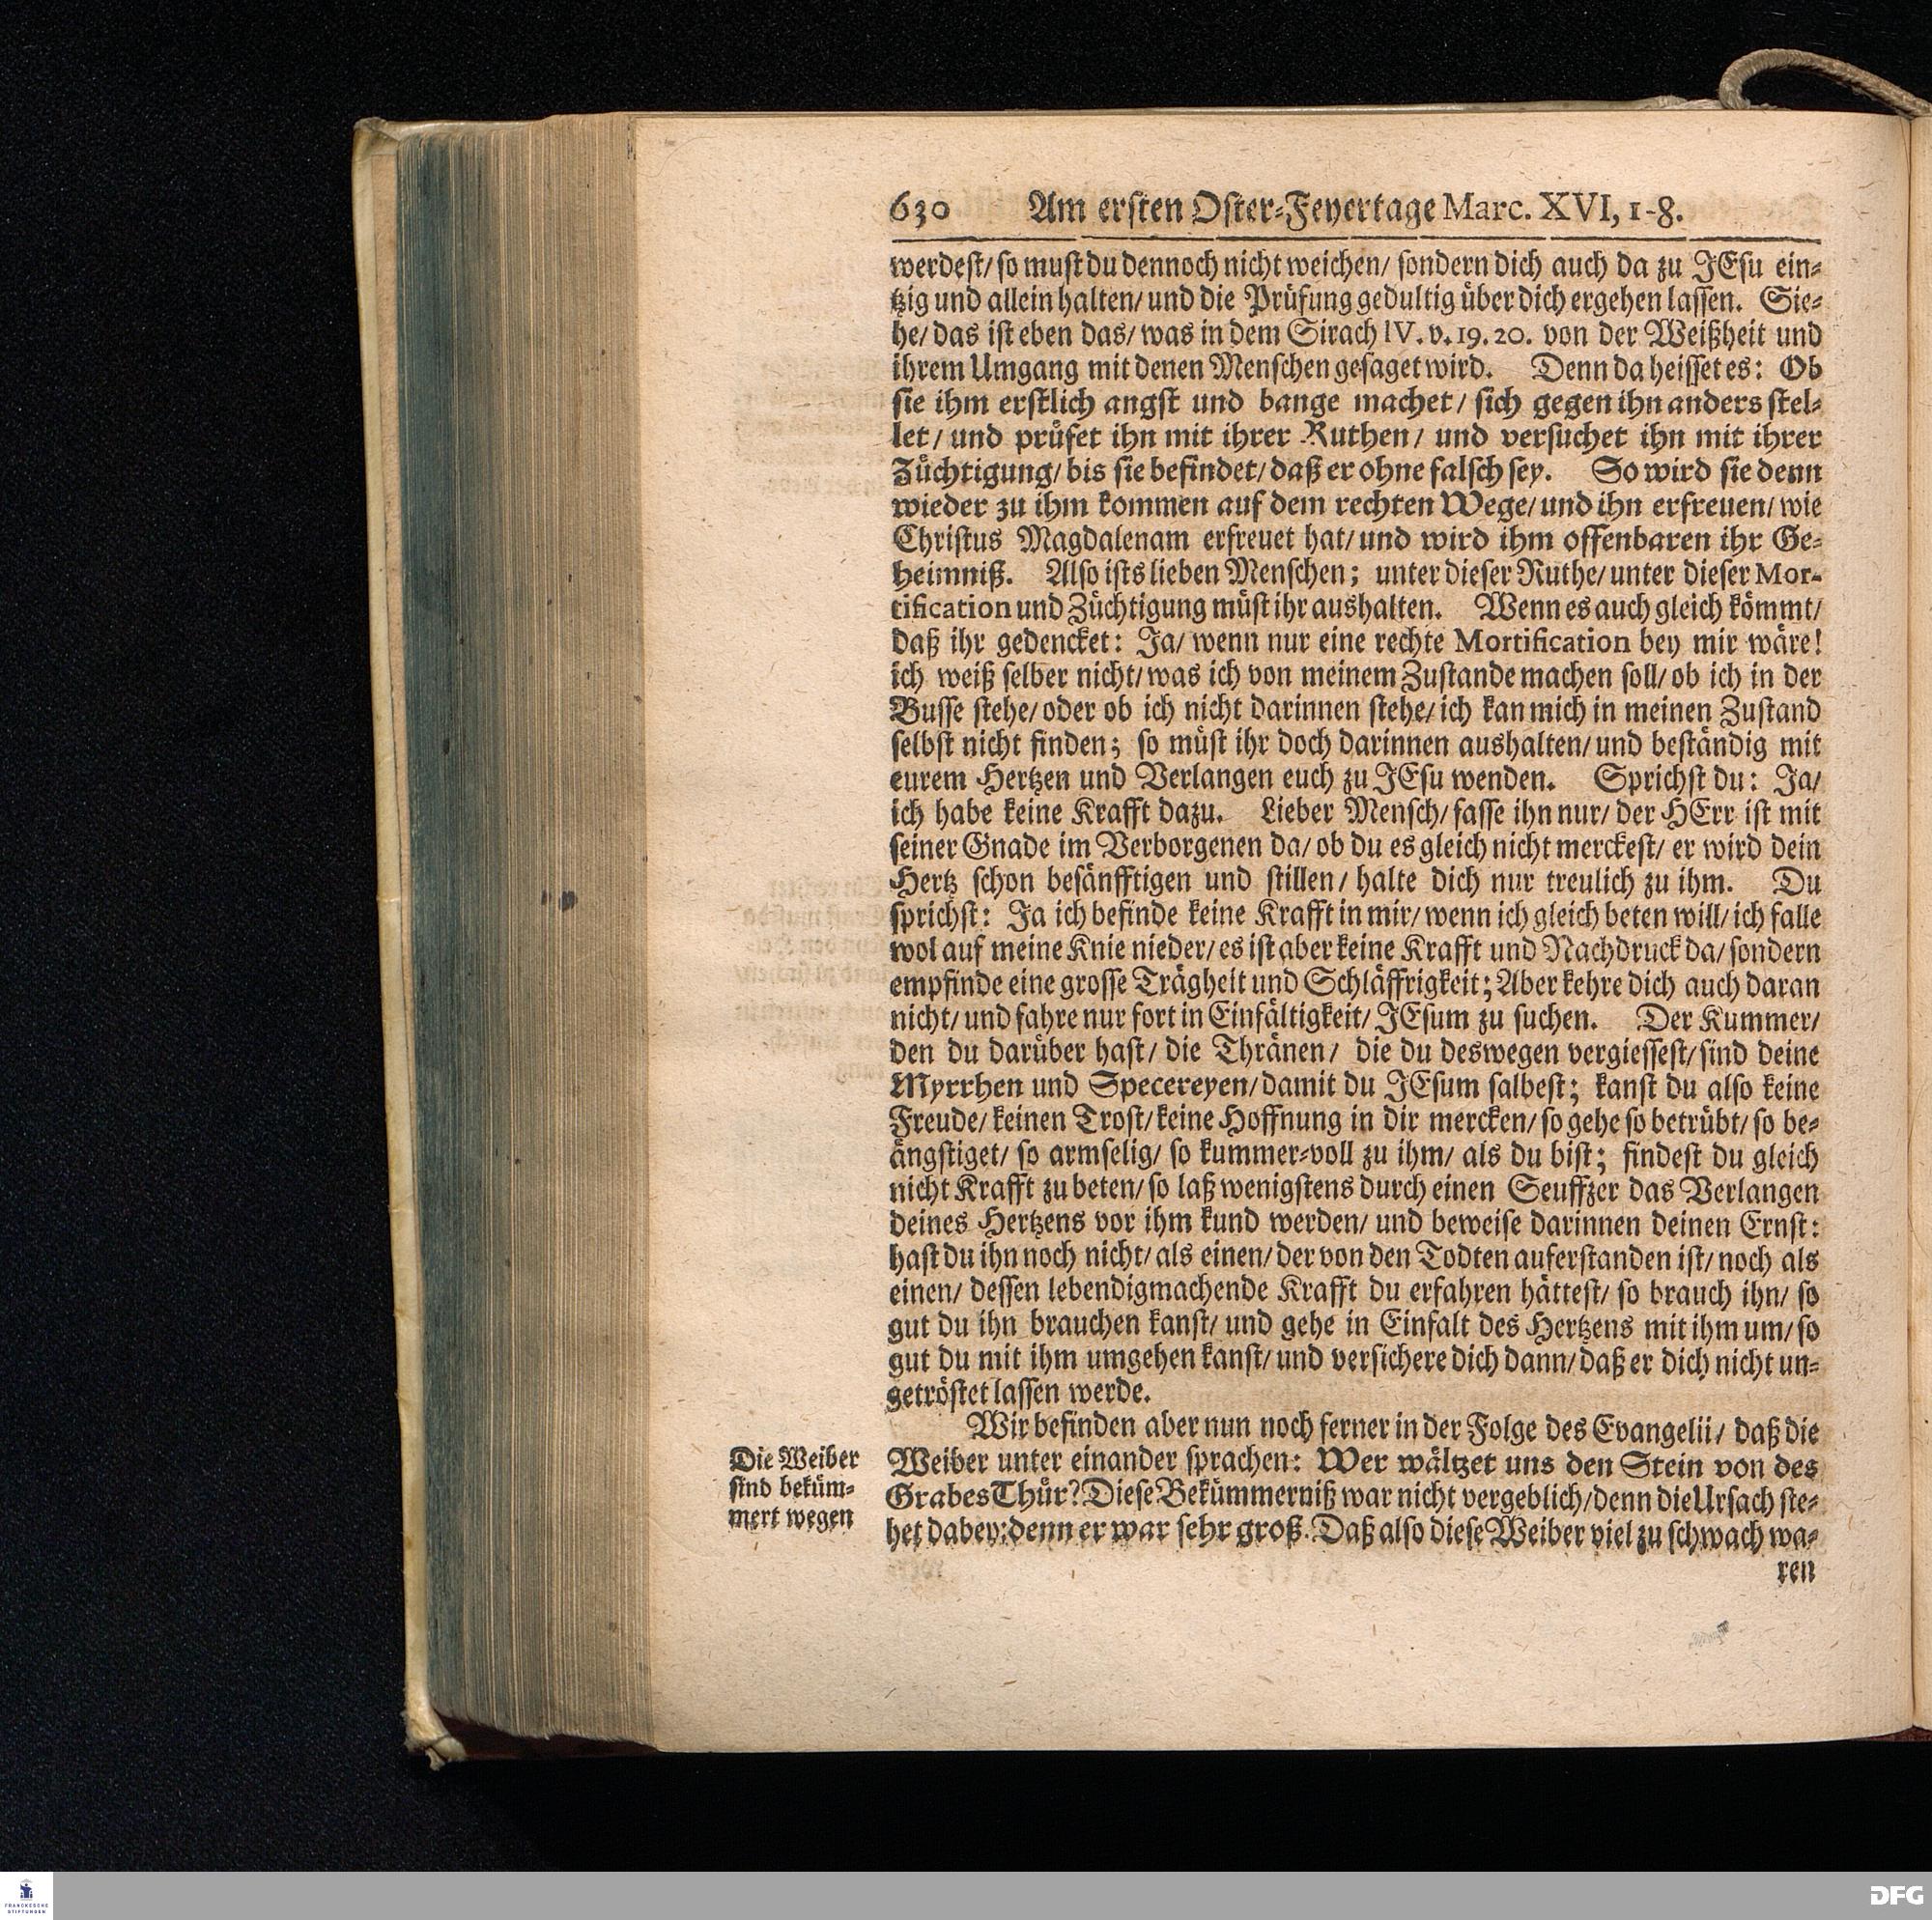 630 Am ersten Oster-Feyertage Marc. XVI, 1-8.
werdest/ so must du dennoch nicht weichen/ sondern dich auch da zu JEsu ein-
tzig und allein halten/ und die Prüfung gedultig über dich ergehen lassen. Sie-
he/ das ist eben das/ was in dem Sirach IV. v. 19. 20. von der Weißheit und
ihrem Umgang mit denen Menschen gesaget wird. Denn da heisset es: Ob
sie ihm erstlich angst und bange machet/ sich gegen ihn anders stel-
let/ und prüfet ihn mit ihrer Ruthen/ und versuchet ihn mit ihrer
Züchtigung/ bis sie befindet/ daß er ohne falsch sey. So wird sie denn
wieder zu ihm kommen auf dem rechten Wege/ und ihn erfreuen/ wie
Christus Magdalenam erfreuet hat/ und wird ihm offenbaren ihr Ge-
heimniß. Also ists lieben Menschen; unter dieser Ruthe/ unter dieser Mor-
tification und Züchtigung müst ihr aushalten. Wenn es auch gleich kömmt/
daß ihr gedencket: Ja/ wenn nur eine rechte Mortification bey mir wäre!
ich weiß selber nicht/ was ich von meinem Zustande machen soll/ ob ich in der
Busse stehe/ oder ob ich nicht darinnen stehe/ ich kan mich in meinen Zustand
selbst nicht finden; so müst ihr doch darinnen aushalten/ und beständig mit
eurem Hertzen und Verlangen euch zu JEsu wenden. Sprichst du: Ja/
ich habe keine Krafft dazu. Lieber Mensch/ fasse ihn nur/ der HErr ist mit
seiner Gnade im Verborgenen da/ ob du es gleich nicht merckest/ er wird dein
Hertz schon besänfftigen und stillen/ halte dich nur treulich zu ihm. Du
sprichst: Ja ich befinde keine Krafft in mir/ wenn ich gleich beten will/ ich falle
wol auf meine Knie nieder/ es ist aber keine Krafft und Nachdruck da/ sondern
empfinde eine grosse Trägheit und Schläffrigkeit; Aber kehre dich auch daran
nicht/ und fahre nur fort in Einfältigkeit/ JEsum zu suchen. Der Kummer/
den du darüber hast/ die Thränen/ die du deswegen vergiessest/ sind deine
Myrrhen und Specereyen/ damit du JEsum salbest; kanst du also keine
Freude/ keinen Trost/ keine Hoffnung in dir mercken/ so gehe so betrübt/ so be-
ängstiget/ so armselig/ so kummer-voll zu ihm/ als du bist; findest du gleich
nicht Krafft zu beten/ so laß wenigstens durch einen Seuffzer das Verlangen
deines Hertzens vor ihm kund werden/ und beweise darinnen deinen Ernst:
hast du ihn noch nicht/ als einen/ der von den Todten auferstanden ist/ noch als
einen/ dessen lebendigmachende Krafft du erfahren hättest/ so brauch ihn/ so
gut du ihn brauchen kanst/ und gehe in Einfalt des Hertzens mit ihm um/ so
gut du mit ihm umgehen kanst/ und versichere dich dann/ daß er dich nicht un-
getröstet lassen werde.
Wir befinden aber nun noch ferner in der Folge des Evangelii/ daß die
Weiber unter einander sprachen: Wer wältzet uns den Stein von des
Grabes Thür? Diese Bekümmerniß war nicht vergeblich/ denn die Ursach ste-
het dabey: denn er war sehr groß. Daß also diese Weiber viel zu schwach wa-
ren
Die Weiber
sind beküm-
mert wegen
FRANCKESCHE
STIFTUNGEN
DFG